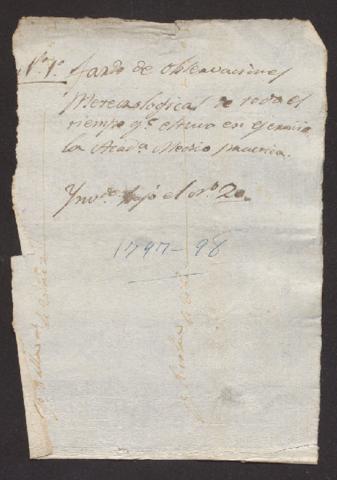 Nº 1º fardo de Observaciones
Metereologicas de todo el
tiempo qe estuvo en exercicio
la Acada Medico practica.
Invdo bajo el nº 20.
1797-98